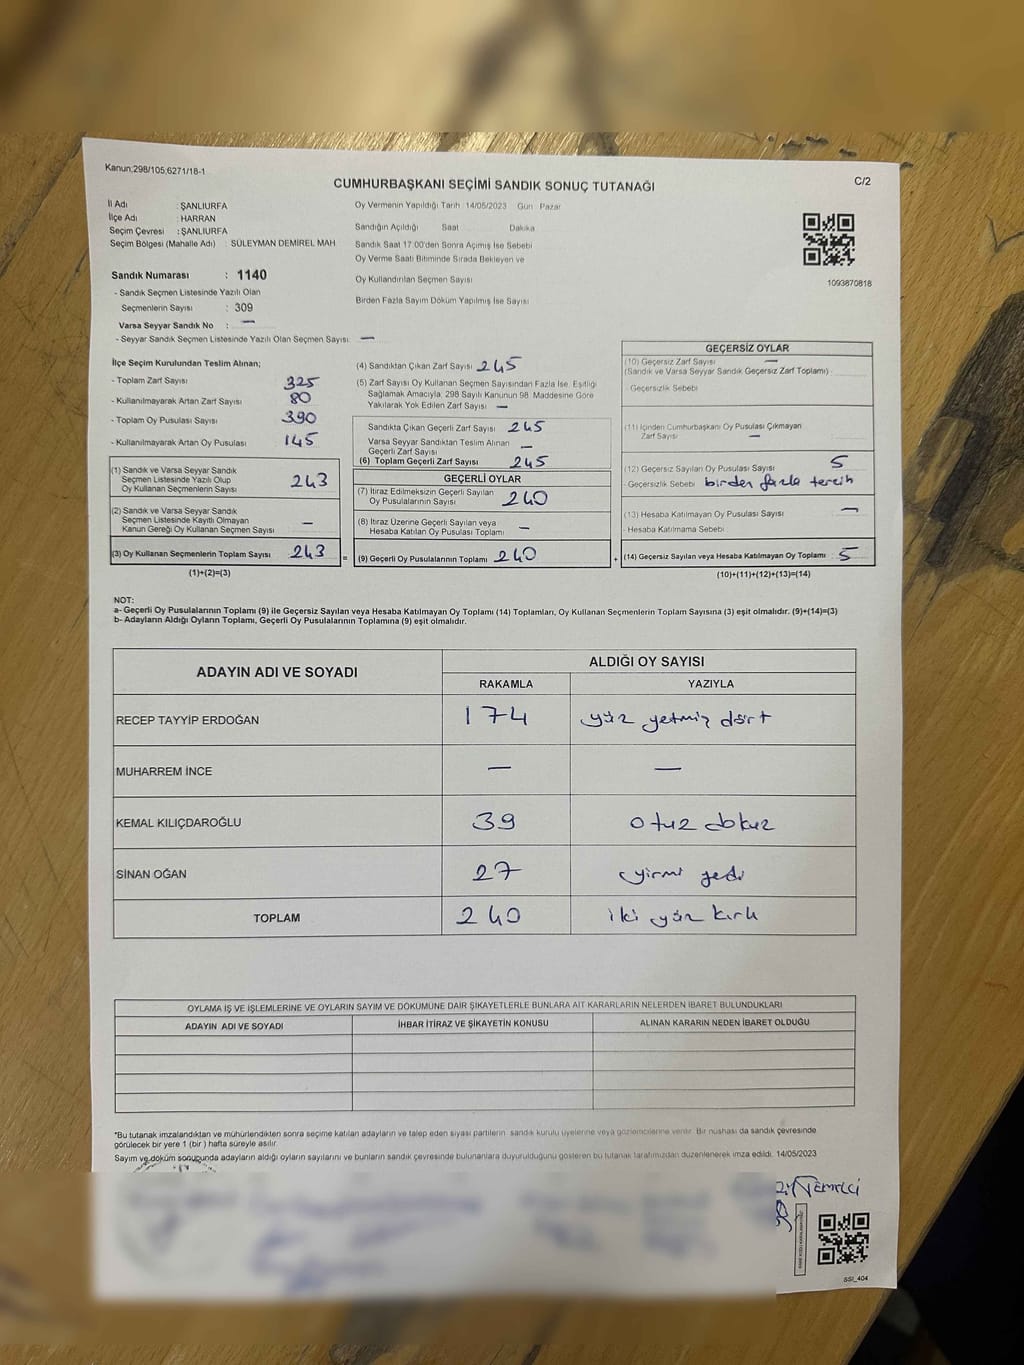 Kanun;298/105;6271/18-1
CUMHURBAŞKANI SEÇİMİ SANDIK SONUÇ TUTANAĞI
C/2
İl Adı : ŞANLIURFA
İlçe Adı : HARRAN
Seçim Çevresi : ŞANLIURFA
Seçim Bölgesi (Mahalle Adı) : SÜLEYMAN DEMİREL MAH
Oy Vermenin Yapıldığı Tarih 14/05/2023 Gün Pazar
Sandığın Açıldığı Saat Dakika
Sandık Saat 17:00'den Sonra Açımış İse Sebebi
Oy Verme Saati Bitiminde Sırada Bekleyen ve
Oy Kullandırılan Seçmen Sayısı
Birden Fazla Sayım Döküm Yapılmış İse Sayısı
1093870818
Sandık Numarası : 1140
- Sandık Seçmen Listesinde Yazılı Olan
Seçmenlerin Sayısı : 309
Varsa Seyyar Sandık No : —
- Seyyar Sandık Seçmen Listesinde Yazılı Olan Seçmen Sayısı —
İlçe Seçim Kurulundan Teslim Alınan;
- Toplam Zarf Sayısı 325
- Kullanılmayarak Artan Zarf Sayısı 80
- Toplam Oy Pusulası Sayısı 390
- Kullanılmayarak Artan Oy Pusulası 145
(1) Sandık ve Varsa Seyyar Sandık
Seçmen Listesinde Yazılı Olup
Oy Kullanan Seçmenlerin Sayısı 243
(2) Sandık ve Varsa Seyyar Sandık
Seçmen Listesinde Kayıtlı Olmayan
Kanun Gereği Oy Kullanan Seçmen Sayısı —
(3) Oy Kullanan Seçmenlerin Toplam Sayısı 243 =
(1)+(2)=(3)
(4) Sandıktan Çıkan Zarf Sayısı 245
(5) Zarf Sayısı Oy Kullanan Seçmen Sayısından Fazla İse, Eşitliği
Sağlamak Amacıyla; 298 Sayılı Kanunun 98. Maddesine Göre
Yakılarak Yok Edilen Zarf Sayısı —
Sandıkta Çıkan Geçerli Zarf Sayısı 245
Varsa Seyyar Sandıktan Teslim Alınan
Geçerli Zarf Sayısı —
(6) Toplam Geçerli Zarf Sayısı 245
GEÇERLİ OYLAR
(7) İtiraz Edilmeksizin Geçerli Sayılan
Oy Pusulalarının Sayısı 240
(8) İtiraz Üzerine Geçerli Sayılan veya
Hesaba Katılan Oy Pusulası Toplamı —
(9) Geçerli Oy Pusulalarının Toplamı 240 +
GEÇERSİZ OYLAR
(10) Geçersiz Zarf Sayısı —
(Sandık ve Varsa Seyyar Sandık Geçersiz Zarf Toplamı)
- Geçersizlik Sebebi
(11) İçinden Cumhurbaşkanı Oy Pusulası Çıkmayan
Zarf Sayısı —
(12) Geçersiz Sayılan Oy Pusulası Sayısı 5
- Geçersizlik Sebebi birden fazla tercih
(13) Hesaba Katılmayan Oy Pusulası Sayısı —
- Hesaba Katılmama Sebebi
(14) Geçersiz Sayılan veya Hesaba Katılmayan Oy Toplamı 5
(10)+(11)+(12)+(13)=(14)
NOT:
a- Geçerli Oy Pusulalarının Toplamı (9) ile Geçersiz Sayılan veya Hesaba Katılmayan Oy Toplamı (14) Toplamları, Oy Kullanan Seçmenlerin Toplam Sayısına (3) eşit olmalıdır. (9)+(14)=(3)
b- Adayların Aldığı Oyların Toplamı, Geçerli Oy Pusulalarının Toplamına (9) eşit olmalıdır.
ADAYIN ADI VE SOYADI ALDIĞI OY SAYISI
RAKAMLA YAZIYLA
RECEP TAYYİP ERDOĞAN 174 yüz yetmiş dört
MUHARREM İNCE — —
KEMAL KILIÇDAROĞLU 39 otuz dokuz
SİNAN OĞAN 27 yirmi yedi
TOPLAM 240 iki yüz kırk
OYLAMA İŞ VE İŞLEMLERİNE VE OYLARIN SAYIM VE DÖKÜMÜNE DAİR ŞİKAYETLERLE BUNLARA AİT KARARLARIN NELERDEN İBARET BULUNDUKLARI
ADAYIN ADI VE SOYADI İHBAR İTİRAZ VE ŞİKAYETİN KONUSU ALINAN KARARIN NEDEN İBARET OLDUĞU
*Bu tutanak imzalandıktan ve mühürlendikten sonra seçime katılan adayların ve talep eden siyasi partilerin sandık kurulu üyelerine veya gözlemcilerine verilir. Bir nüshası da sandık çevresinde
görülecek bir yere 1 (bir ) hafta süreyle asılır.
Sayım ve döküm sonucunda adayların aldığı oyların sayılarını ve bunların sandık çevresinde bulunanlara duyurulduğunu gösteren bu tutanak tarafımızdan düzenlenerek imza edildi. 14/05/2023
SSI_404